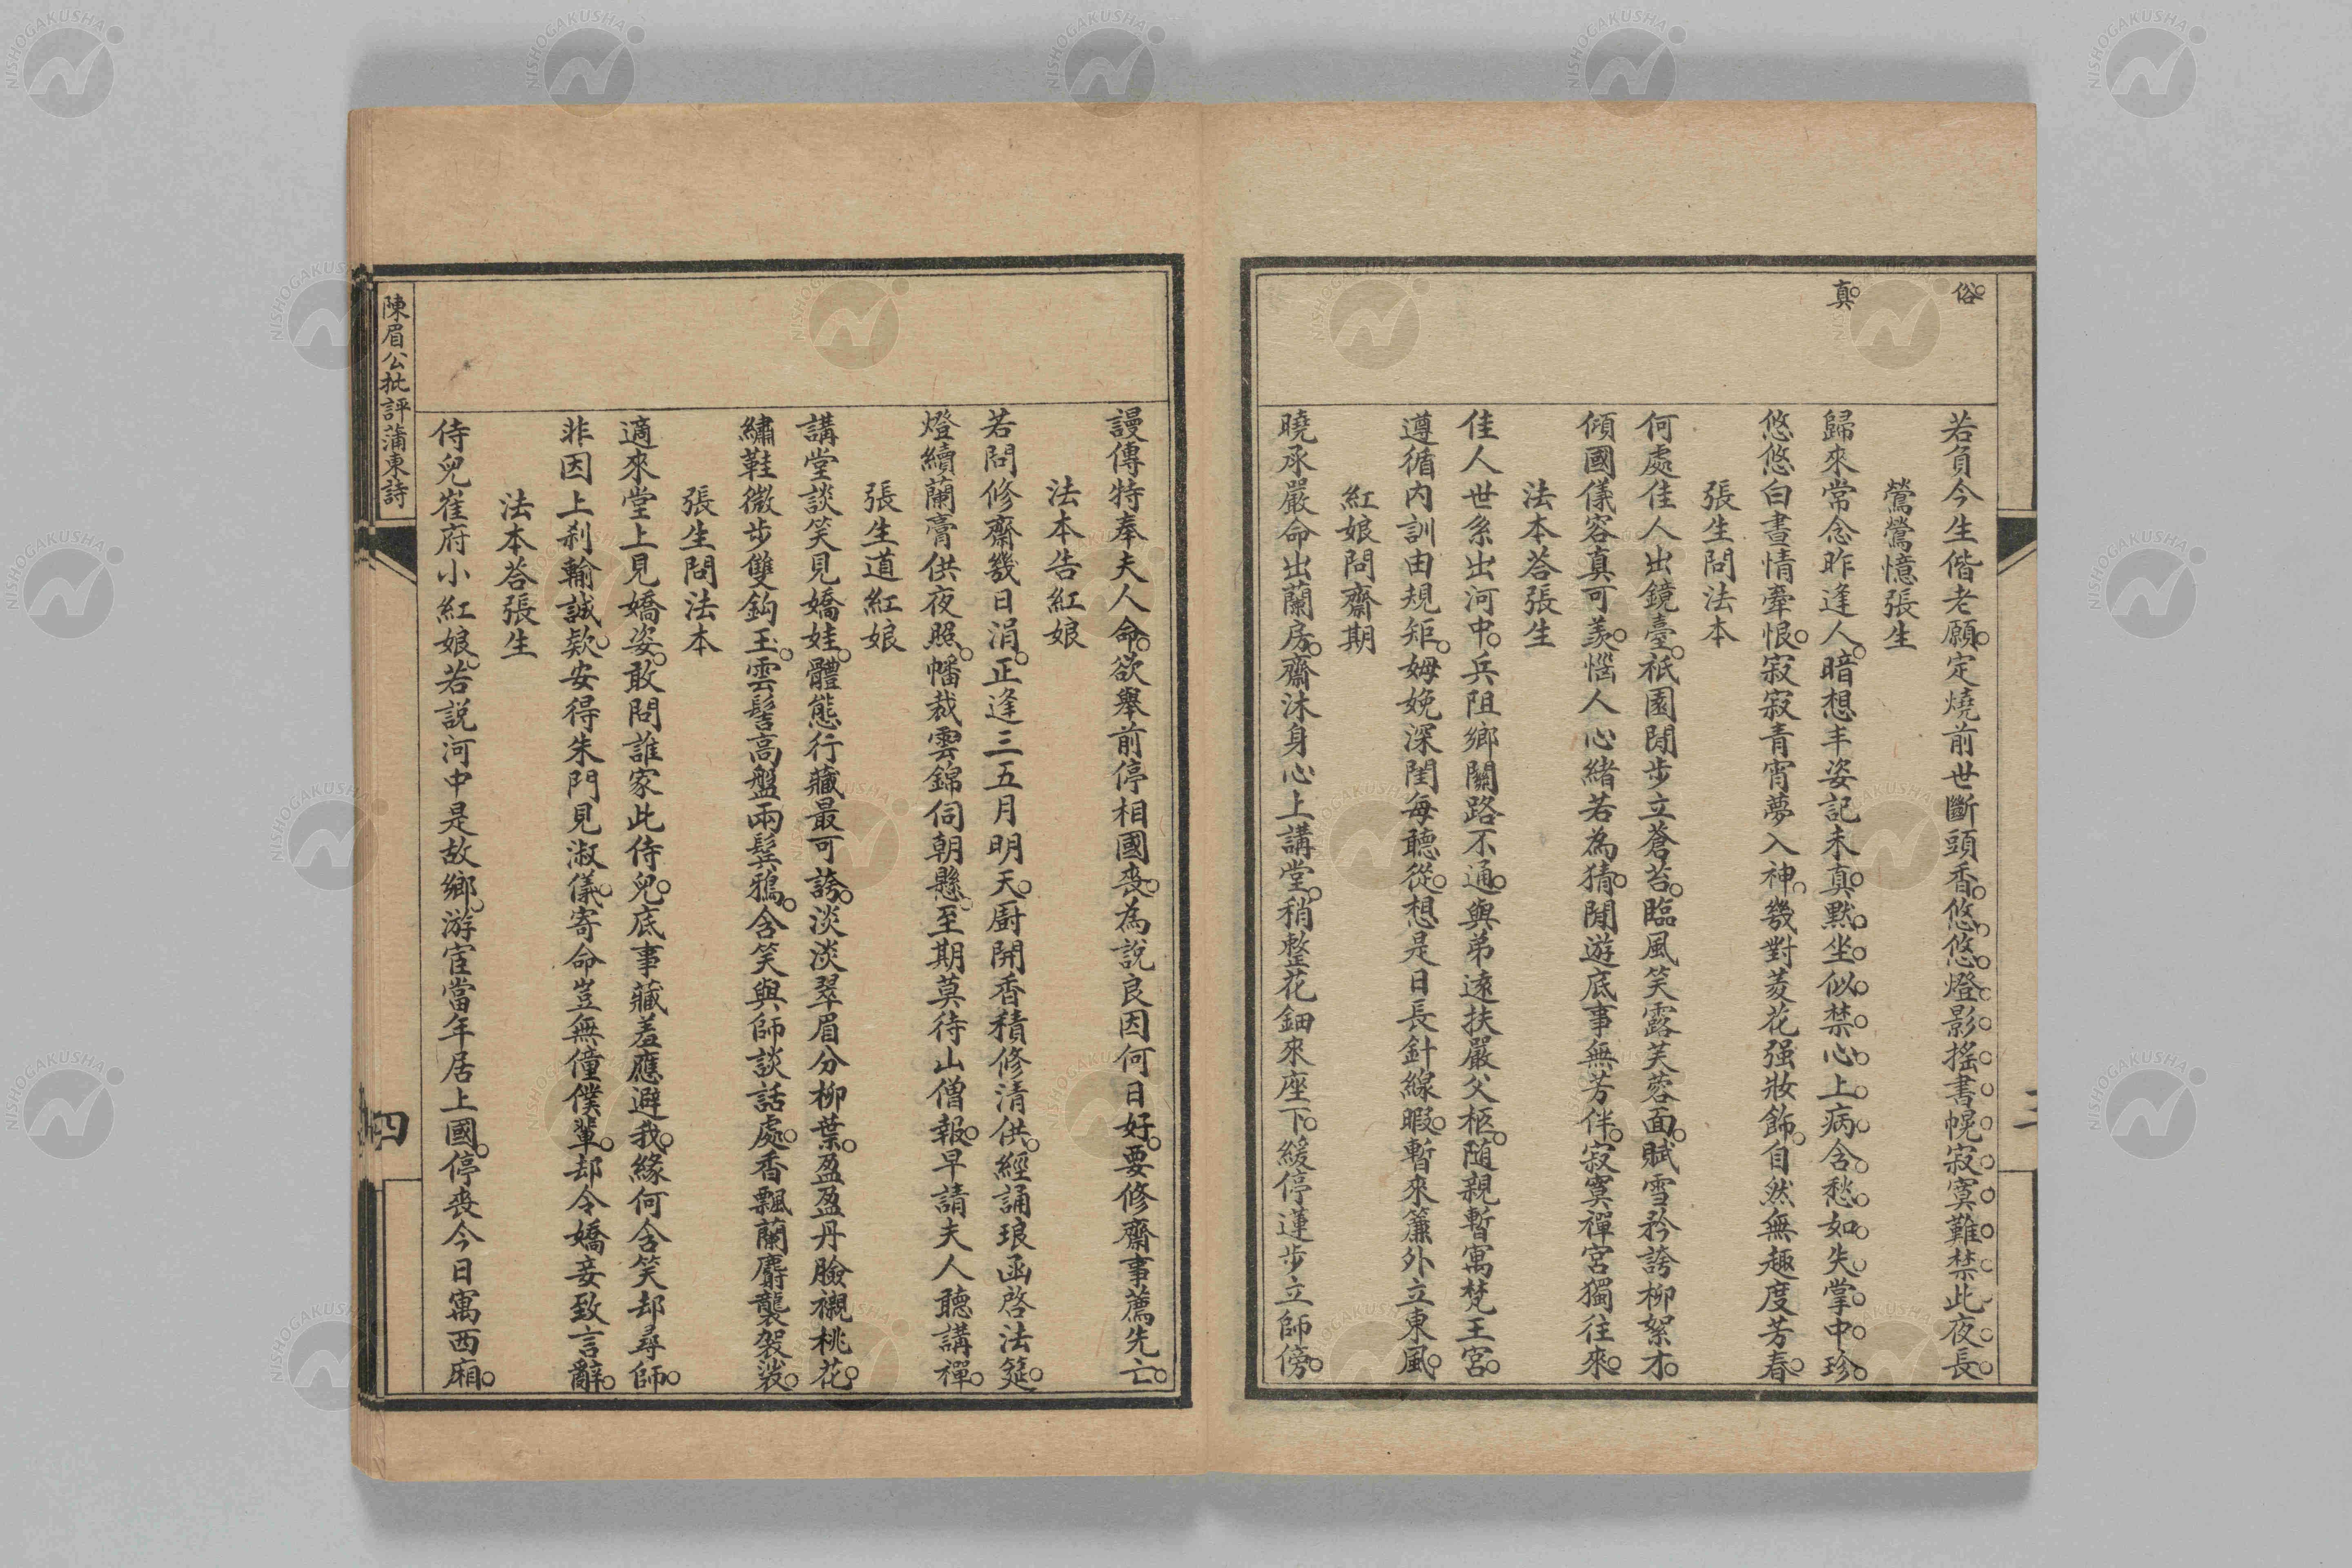 俗
真
若負今生偕老願定燒前世斷頭香悠悠燈影搖書幌寂寞難禁此夜長
鶯鶯憶張生
歸來常念昨逢人暗想丰姿記未真默坐似禁心上病含愁如失掌中珍
悠悠白晝情牽恨寂寂青宵夢入神幾對菱花强妝飾自然無趣度芳春
張生問法本
何處佳人出鏡臺祇園閒步立蒼苔臨風笑露芙蓉面賦雪矜誇柳絮才
傾國儀容真可羨惱人心緒若為猜閒遊底事無芳伴寂寞禪宮獨往來
法本荅張生
佳人世系出河中兵阻鄉關路不通與弟遠扶嚴父柩随親暫寓梵王宮
遵循內訓由規矩姆娩深閨每聽從想是日長針線暇暫來簾外立東風
紅娘問齋期
曉承嚴命出蘭房齋沐身心上講堂稍整花鈿來座下緩停蓮步立師傍
三
謾傳特奉夫人命欲舉前停相國喪為説良因何日好要修齋事薦先亡
法本告紅娘
若問修齋幾日涓正逢三五月明天厨開香積修清供經誦琅函啓法筵
燈續蘭膏供夜照幡裁雲錦伺朝懸至期莫待山僧報早請夫人聽講禪
張生道紅娘
講堂談笑見嬌娃體態行藏最可誇淡淡翠眉分柳葉盈盈丹臉襯桃花
繡鞋微步雙鈎玉雲髻高盤兩鬓鴉含笑與師談話處香飄蘭麝襲袈裟
張生問法本
適來堂上見嬌姿敢問誰家此侍兒底事藏羞應避我緣何含笑却尋師
非因上刹輸誠欵安得朱門見淑儀寄命豈無僮僕輩却令嬌妾致言辭
法本荅張生
侍兒崔府小紅娘若説河中是故鄉游宦當年居上國停喪今日寓西廂
陳眉公批評蒲東詩
四
NISHOGAKUSHA